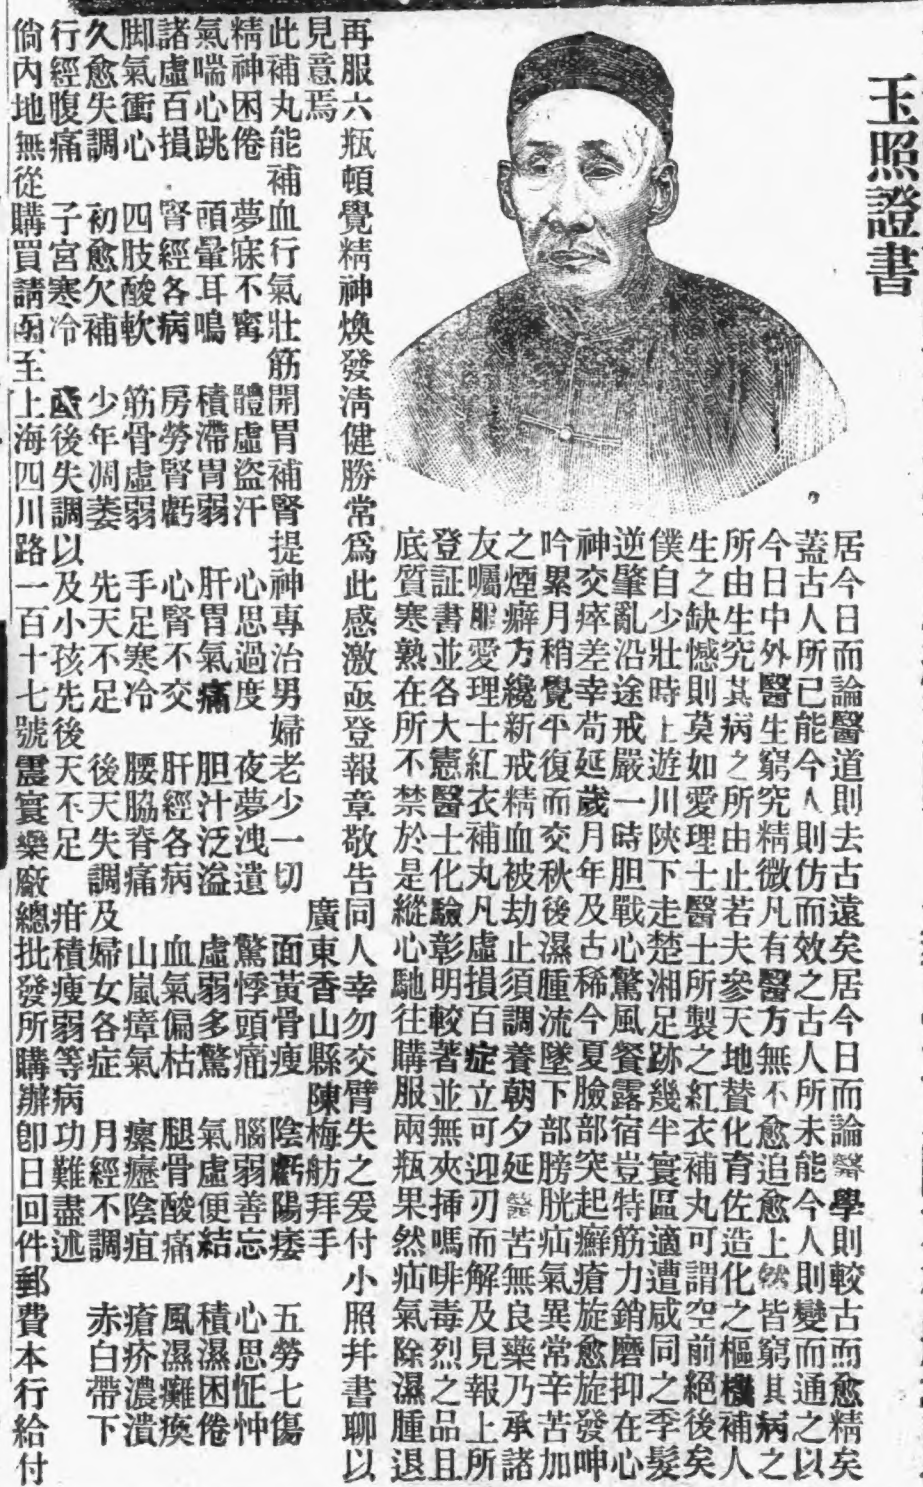 玉照證書
居今日而論醫道則去古遠矣居今日而論醫學則較古而愈精矣
蓋古人所已能今人則仿而效之古人所未能今人則變而通之以
今日中外醫生窮究精微凡有醫方無不愈追愈上然皆窮其病之
所由生究其病之所由止若夫參天地贊化育佐造化之樞機補人
生之缺憾則莫如愛理士醫士所製之紅衣補丸可謂空前絕後矣
僕自少壯時上游川陝下走楚湘足跡幾半寰區適遭咸同之季髮
逆肇亂沿途戒嚴一時胆戰心驚風餐露宿豈特筋力銷磨抑在心
神交瘁差幸苟延歲月年及古稀今夏臉部突起癬瘡旋愈旋發呻
吟累月稍覺平復而交秋後濕腫流墜下部膀胱疝氣異常辛苦加
之煙癖方纔新戒精血被劫止須調養朝夕延醫苦無良藥乃承諸
友囑服愛理士紅衣補丸凡虛損百症立可迎刃而解及見報上所
登証書並各大憲醫士化驗彰明較著並無夾揷嗎啡毒烈之品且
底質寒熟在所不禁於是縱心馳往購服兩瓶果然疝氣除濕腫退
再服六瓶頓覺精神煥發淸健勝常爲此感激亟登報章敬告同人幸勿交臂失之爰付小照幷書聊以
見意焉 廣東香山縣陳梅舫拜手
此補丸能補血行氣壯筋開胃補腎提神專治男婦老少一切 面黃骨瘦 陰虧陽痿 五勞七傷
精神困倦 夢寐不甯 體虛盜汗 心思過度 夜夢洩遺 驚悸頭痛 腦弱善忘 心思怔忡
氣喘心跳 頭暈耳鳴 積滯胃弱 肝胃氣痛 胆汁泛溢 虛弱多驚 氣虛便結 積濕困倦
諸虛百損 腎經各病 房勞腎虧 心腎不交 肝經各病 血氣偏枯 腿骨酸痛 風濕癱瘓
脚氣衝心 四肢酸軟 筋骨虛弱 手足寒冷 腰脇脊痛 山嵐瘴氣 瘰癧陰疽 瘡疥濃潰
久愈失調 初愈欠補 少年凋萎 先天不足 後天失調 及婦女各症 月經不調 赤白帶下
行經腹痛 子宮寒冷 後失調以及小孩先後天不足 疳積瘦弱等病功難盡述
倘內地無從購買請函至上海四川路一百十七號震寰藥廠總批發所購辦卽日回件郵費本行給付